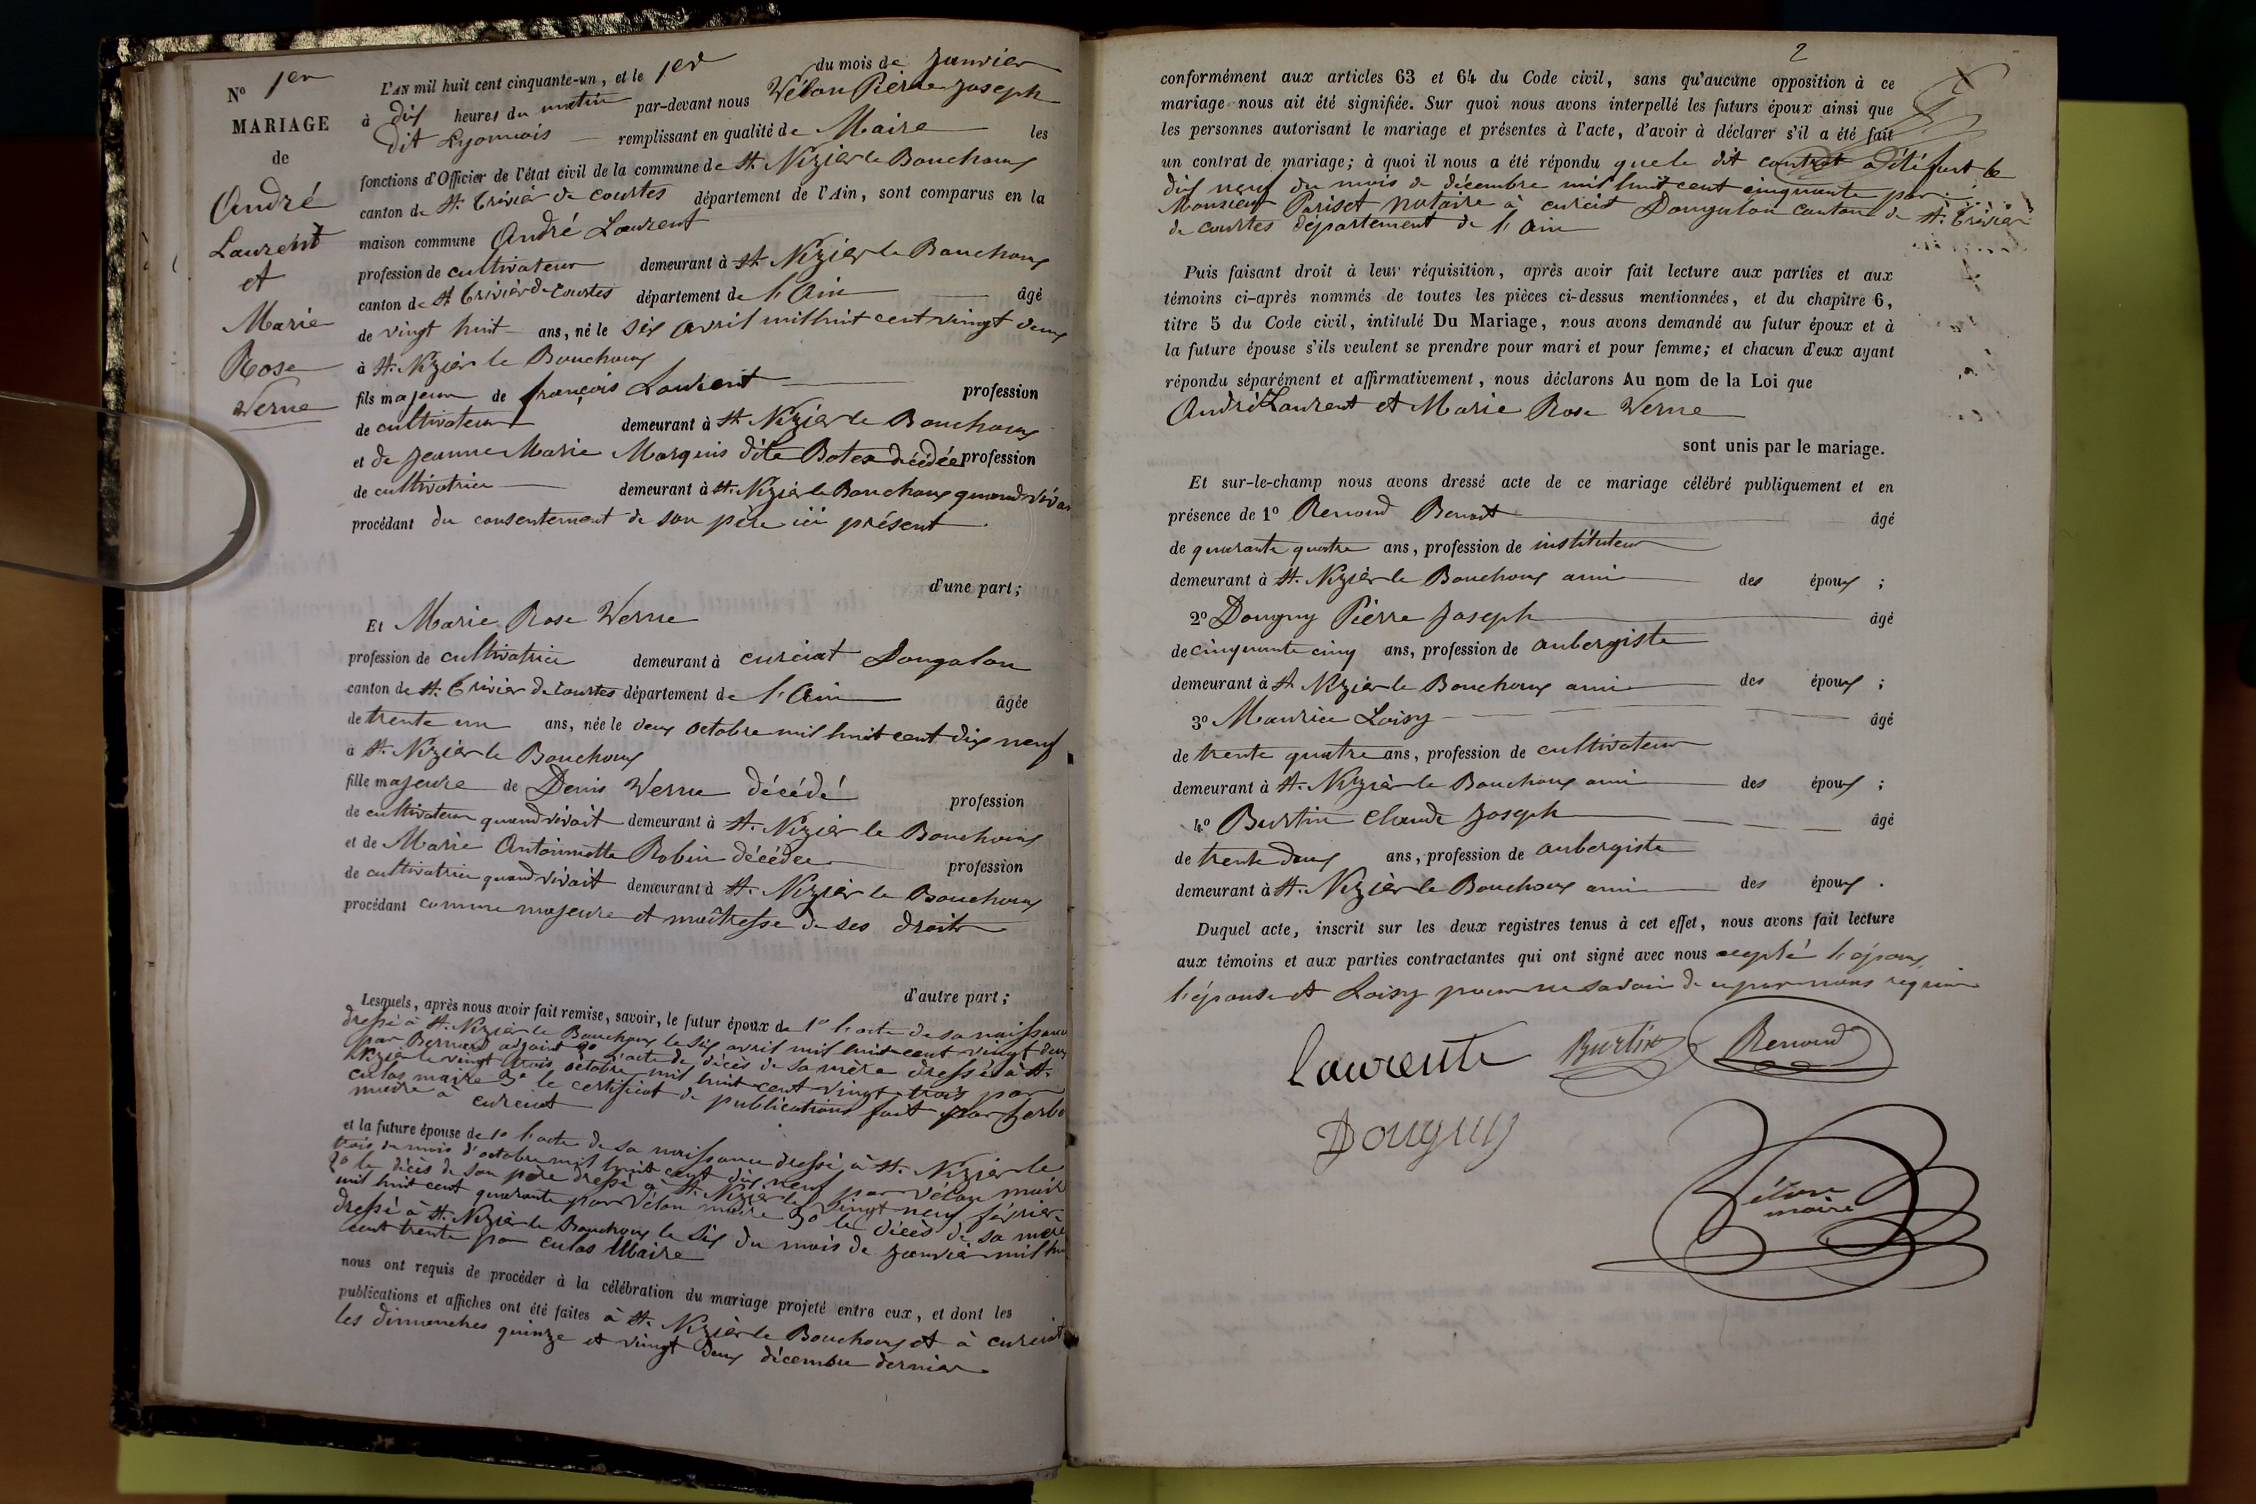 N° 1er
MARIAGE
de
André
Laurent
et
Marie
Rose
Verne
L'AN mil huit cent cinquante-un, et le 1er du mois de Janvier
à dix heures du matin par-devant nous Vélon Pierre Joseph
dit Lyonnais remplissant en qualité de Maire les
fonctions d'Officier de l'état civil de la commune de St. Nizier le Bouchoux
canton de St. Trivier de courtes département de l'Ain, sont comparus en la
maison commune André Laurent
profession de cultivateur demeurant à St. Nizier le Bouchoux
canton de St Trivier de Courtes département de l'Ain âgé
de vingt huit ans, né le six avril mil huit cent vingt deux
à St. Nizier le Bouchoux
fils majeur de françois Laurent profession
de cultivateur demeurant à St. Nizier le Bouchoux
et de Jeanne Marie Marquis dite Botex décédée profession
de cultivatrice demeurant à St. Nizier le Bouchoux quand vivait
procédant du consentement de son père ici présent
d'une part;
Et Marie Rose Verne
profession de cultivatrice demeurant à curciat Dongalon
canton de St. Trivier de Courtes département de l'Ain âgée
de trente un ans, née le deux octobre mil huit cent dix neuf
à St. Nizier le Bouchoux
fille majeure de Denis Verne décédé profession
de cultivateur quand vivait demeurant à St. Nizier le Bouchoux
et de Marie Antoinette Robin décédée profession
de cultivatrice quand vivait demeurant à St. Nizier le Bouchoux
procédant comme majeure et maîtresse de ses droits
d'autre part;
Lesquels, après nous avoir fait remise, savoir, le futur époux de 1° l'acte de sa naissance
dressé à St. Nizier le Bouchoux le six avril mil huit cent vingt deux
par Bernard adjoint 2° l'acte de décès de sa mère dressé à St.
Nizier le vingt trois octobre mil huit cent vingt trois par
culas maire 3° le certificat de publications fait par
maire à curciat
et la future épouse de 1° l'acte de sa naissance dressé à St. Nizier le
trois du mois d'octobre mil huit cent dix neuf par Vélon maire
2° le décès de son père dressé à St. Nizier le vingt neuf février
mil huit cent quarante par Vélon maire 3° le décès de sa mère
dressé à St. Nizier le Bouchoux le six du mois de janvier mil
cent trente par culas Maire
nous ont requis de procéder à la célébration du mariage projeté entre eux, et dont les
publications et affiches ont été faites à St. Nizier le Bouchoux et à curciat
les dimanches quinze et vingt deux décembre dernier
2
conformément aux articles 63 et 64 du Code civil, sans qu'aucune opposition à ce
mariage nous ait été signifiée. Sur quoi nous avons interpellé les futurs époux ainsi que
les personnes autorisant le mariage et présentes à l'acte, d'avoir à déclarer s'il a été fait
un contrat de mariage; à quoi il nous a été répondu que le dit contrat a été fait le
dix neuf du mois de décembre mil huit cent cinquante par
Monsieur Pariset notaire à curciat Dongalon canton de St. Trivier
de courtes département de l'Ain
Puis faisant droit à leur réquisition, après avoir fait lecture aux parties et aux
témoins ci-après nommés de toutes les pièces ci-dessus mentionnées, et du chapitre 6,
titre 5 du Code civil, intitulé Du Mariage, nous avons demandé au futur époux et à
la future épouse s'ils veulent se prendre pour mari et pour femme; et chacun d'eux ayant
répondu séparément et affirmativement, nous déclarons Au nom de la Loi que
André Laurent et Marie Rose Verne
sont unis par le mariage.
Et sur-le-champ nous avons dressé acte de ce mariage célébré publiquement et en
présence de 1° Renoud Benoit âgé
de quarante quatre ans, profession de instituteur
demeurant à St. Nizier le Bouchoux ami des époux ;
2° Douguy Pierre Joseph âgé
de cinquante cinq ans, profession de aubergiste
demeurant à St Nizier le Bouchoux ami des époux ;
3° Maurice Loisy âgé
de trente quatre ans, profession de cultivateur
demeurant à St. Nizier le Bouchoux ami des époux ;
4° Burtin Claude Joseph âgé
de trente deux ans, profession de aubergiste
demeurant à St. Nizier le Bouchoux ami des époux .
Duquel acte, inscrit sur les deux registres tenus à cet effet, nous avons fait lecture
aux témoins et aux parties contractantes qui ont signé avec nous excepté l'époux
l'épouse et Loisy pour ne savoir de ce par nous requis
Laurent Burtin Renoud
Douguy
Vélon
maire